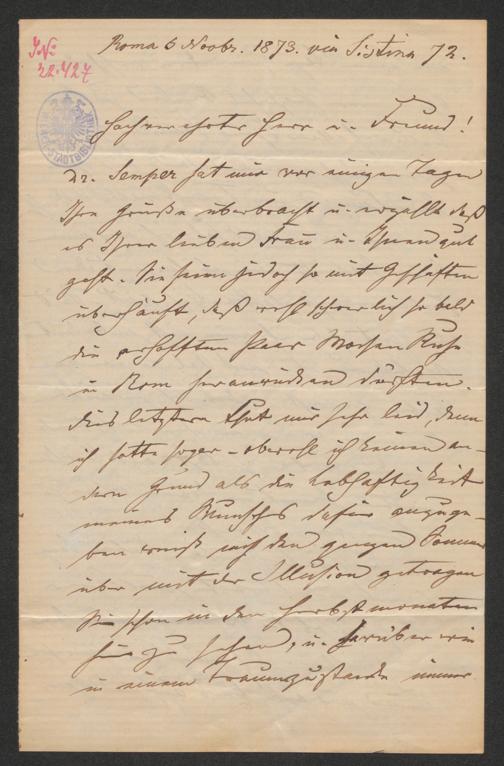 I.N.
22.427
Roma 6 Novbr. 1873. via Sistina 72.
Hochverehrter Herr u. Freund!
Dr. Semper hat mir vor einigen Tagen
Ihre Grüße überbracht u. erzählt daß
es Ihrer lieben Frau u. Ihnen gut
geht. Sie seien jedoch so mit Geschäften
überhäuft, daß wohl schwerlich so bald
die erhofften paar Wochen Ruhe
in Rom heranrücken dürften.
Dies letztere thut mir sehr leid, denn
ich hatte sogar – obwohl ich keinen an-
dern Grund als die Lebhaftigkeit
meines Wunsches dafür anzuge-
ben weiß mich den ganzen Sommer
über mit der Illusion getragen
Sie schon in den Herbstmonaten
hier zu sehen, u. darüber wie
in einem Traumzustande immer